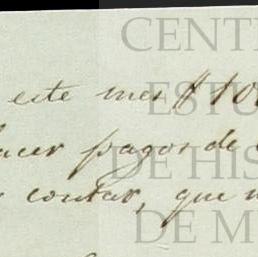 este mes $100
hacer pagos de
contar, que
CENT
ESTU
DE HIS
DE M